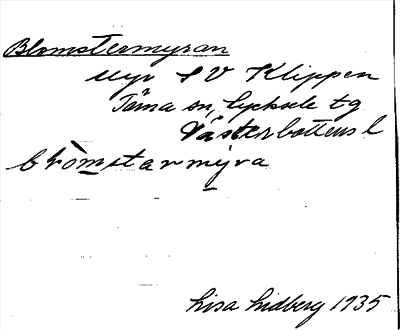 Blomstermyran
myr S V Klippen
Tärna sn, Lycksele tg
Västerbottens l
blòmstarmỳra
Lisa Lidberg 1935